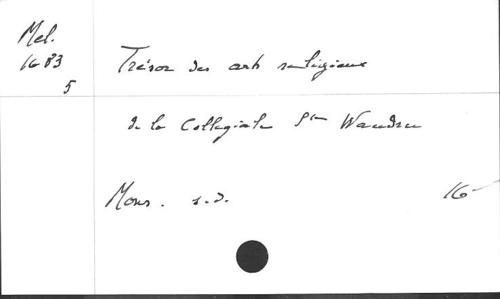 Mel.
1683
5
Trésor des arts religieux
de la Collegiale Ste Waudru
Mons. s.d.
16-